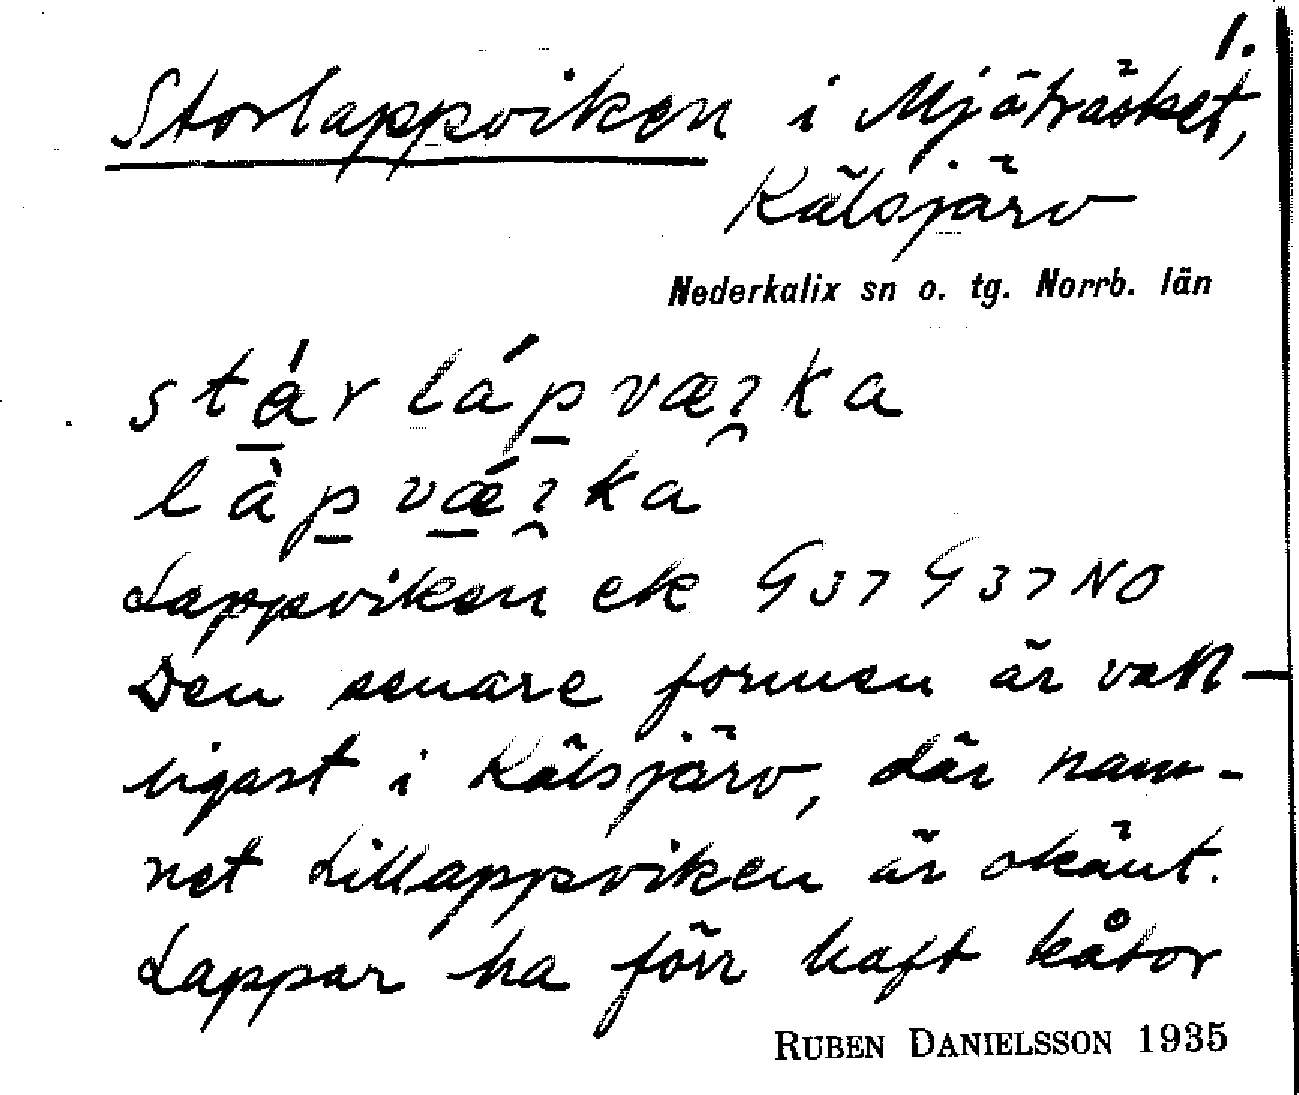 1.
Storlappviken i Mjöträsket,
Kälsjärv
Nederkalix sn o. tg. Norrb. län
stár lápværka
làpvǽrka
Lappviken ek G 37 G 37 NO
Den senare formen är vanl-
ligast i Kälsjärv, där nam-
net Lillappviken är okänt.
Lappar ha förr haft kåtor
RUBEN DANIELSSON 1935